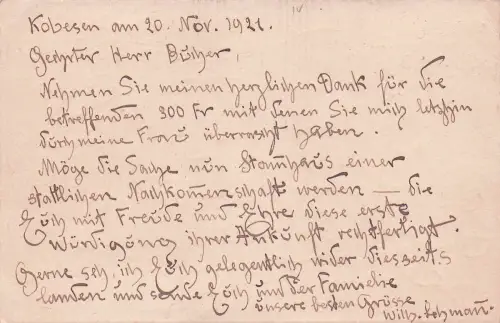 Kobesen am 20. Nov. 1921.
Geehrter Herr Bücher,
Nehmen Sie meinen herzlichen Dank für die
betreffenden 300 Fr mit denen Sie mich letsthin
durch meine Frau überrascht haben.
Möge die Sache nun Stammhaus einer
stattlichen Nachkommenschaft werden — die
Euch mit Freude und Ehre diese erste
Würdigung ihrer Ankunft rechtfertigt.
Gerne seh ich Euch gelegentlich wider diesseits
landen und sende Euch und der Familie
unsere besten Grüsse
Wilh. Lehmann.